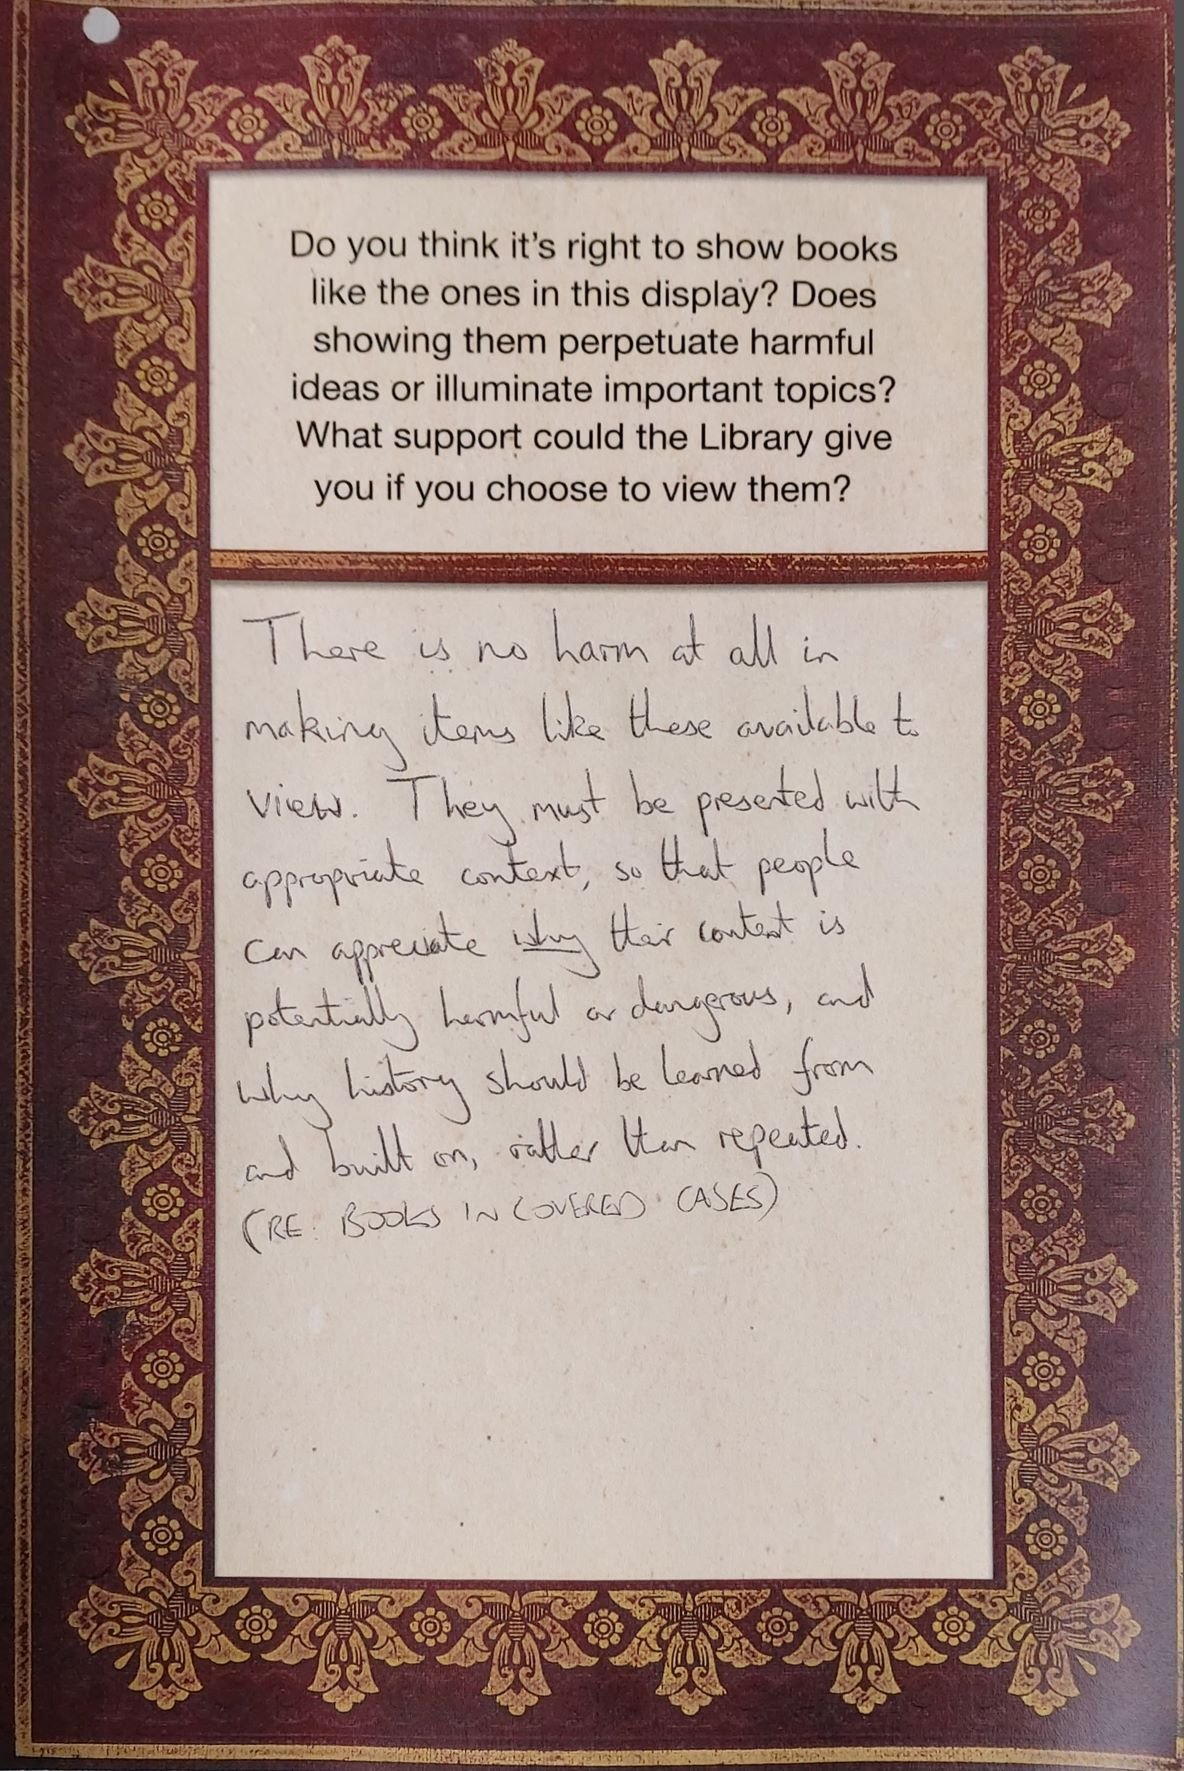 Do you think it's right to show books
like the ones in this display? Does
showing them perpetuate harmful
ideas or illuminate important topics?
What support could the Library give
you if you choose to view them?
There is no harm at all in
making items like these available to
view. They must be presented with
appropriate context, so that people
can appreciate why their content is
potentially harmful or dangerous, and
why history should be learned from
and built on, rather than repeated.
(RE: BOOKS IN COVERED CASES)